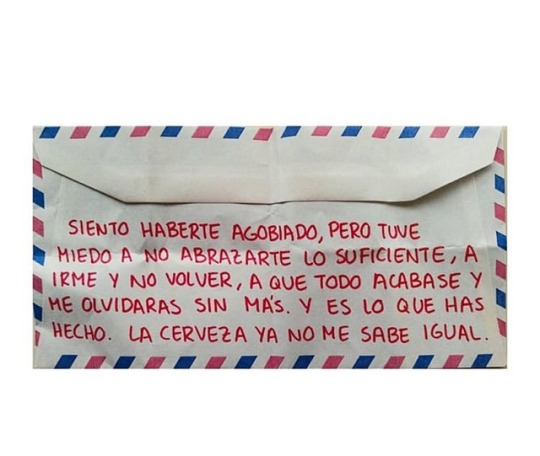 SIENTO HABERTE AGOBIADO, PERO TUVE
MIEDO A NO ABRAZARTE LO SUFICIENTE, A
IRME Y NO VOLVER, A QUE TODO ACABASE Y
ME OLVIDARAS SIN MÁS. Y ES LO QUE HAS
HECHO. LA CERVEZA YA NO ME SABE IGUAL.